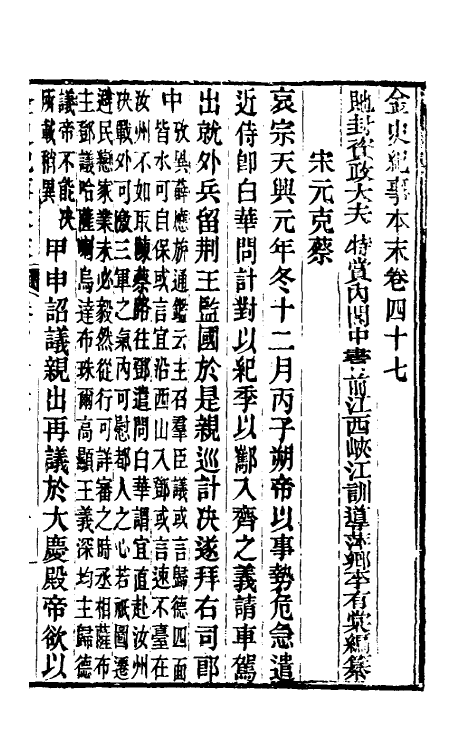 金史紀事本末卷四十七
貤封奉政大夫 特賞內閣中書前江西峽江訓導萍鄉李有棠編纂
宋元克蔡
哀宗天興元年冬十二月丙子朔帝以事勢危急遣
近侍卽白華問計對以紀季以酅入齊之義請車駕
出就外兵留荆王監國於是親巡計決遂拜右司郎
中
攷異薛應旂通鑑云主召羣臣議或言歸德四面
皆水可自保或言宜沿西山入鄧或言速不臺在
汝州不如取陳蔡路往鄧遣問白華謂宜直赴汝州
決戰外可激三軍之氣內可慰都人之心若祇圖遷
避民戀家業未必毅然從行可詳審之時丞相薩布
主鄧議哈薩喇烏達布珠爾高顯王義深均主歸德
議帝不能決
所載稍異
甲申詔議親出再議於大慶殿帝欲以